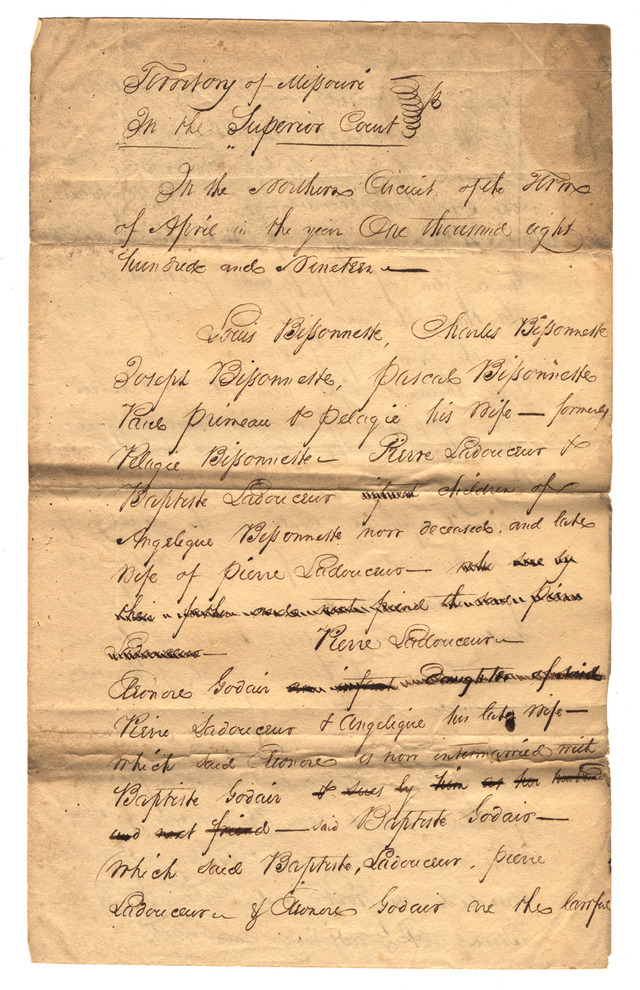 Territory of Missouri
In the Superior Court
In the Northern Circuit of the Term
of April in the year One thousand eight
hundred and Nineteen
Louis Bissonnette, Charles Bissonnette
Joseph Bissonnette, Pascal Bissonnette
Paul Primeau & Pelagie his Wife — formerly
Pelagie Bissonnette — Pierre Ladouceur &
Baptiste Ladouceur infant children of
Angelique Bissonnette now deceased, and late
Wife of Pierre Ladouceur — who sue by
their father and next friend the said Pierre
Ladouceur — Pierre Ladouceur —
Eleonore Godair an infant Daughter of said
Pierre Ladouceur & Angelique his late Wife —
which said Eleonore is now intermarried with
Baptiste Godair & sues by him as her husband
and next friend — said Baptiste Godair —
which said Baptiste, Ladouceur, Pierre
Ladouceur & Eleonore Godair are the lawful